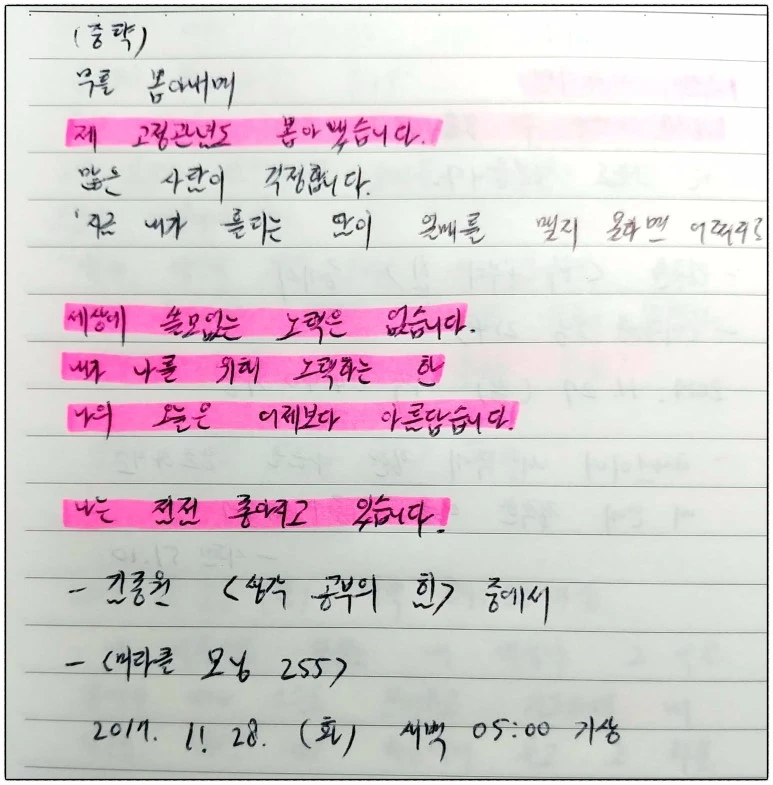 (중략)
무를 뽑아내며
제 고정관념도 뽑아 냈습니다.
많은 사람이 걱정합니다.
'지금 내가 흘리는 땀이 열매를 맺지 못하면 어쩌지?
세상에 쓸모없는 노력은 없습니다.
내가 나를 위해 노력하는 한
나의 오늘은 어제보다 아름답습니다.
나는 점점 좋아지고 있습니다.
- 김종원 <생각 공부의 힘> 중에서
- <미라클 모닝 255>
2017. 11. 28. (화) 새벽 05:00 기상